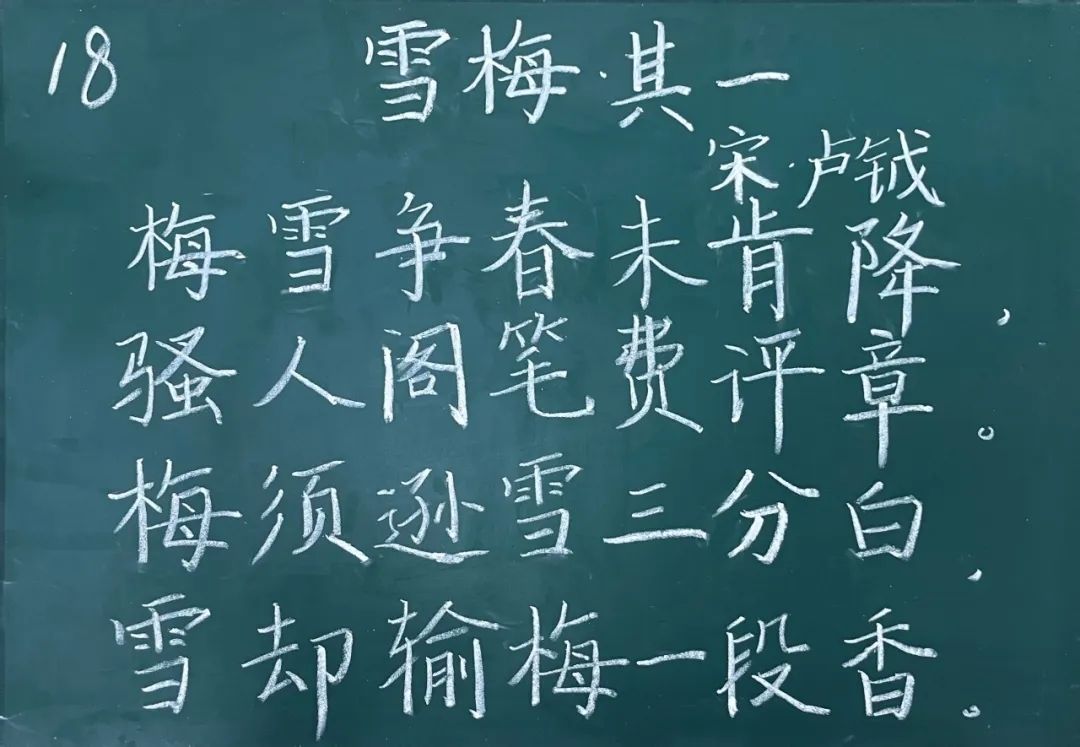 18
雪梅·其一
宋·卢钺
梅雪争春未肯降,
骚人阁笔费评章。
梅须逊雪三分白,
雪却输梅一段香。